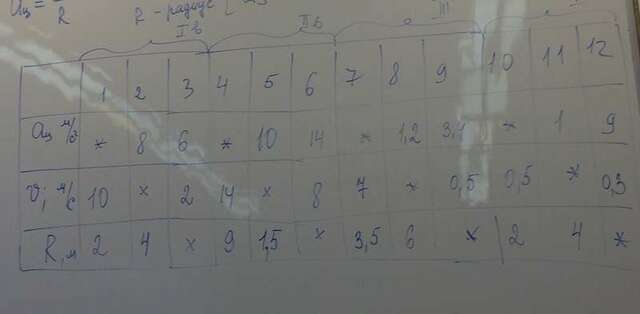 aц = R
R - радиус [
I в II в III
1 2 3 4 5 6 7 8 9 10 11 12
aц м/с² * 8 6 * 10 14 * 1,2 3,1 * 1 9
υ, м/с 10 × 2 14 × 8 7 * 0,5 0,5 * 0,3
R, м 2 4 × 9 1,5 × 3,5 6 * 2 4 *